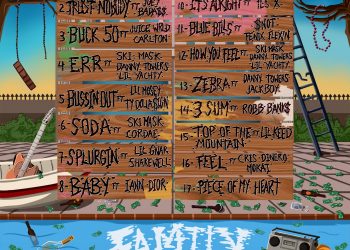 2- TRUST NOBODY FT JOEY BADA$$
3- BUCK 50 FT JUICE WRLD CARLTON
4- ERR FT SKI MASK DANNY TOWERS LIL YACHTY
5- BUSSIN OUT FT LIL MOSEY TY DOLLA $IGN
6- SODA FT SKI MASK CORDAE
7- SPLURGIN FT LIL GNAR SHAKEWELL
8- BABY FT IANN DIOR
10- IT'S ALRIGHT FT
11- BLUE BILLS FT $NOT FENIX FLEXIN
12- HOW YOU FEEL FT SKI MASK DANNY TOWERS LIL YACHTY
13- ZEBRA FT DANNY TOWERS JACKBOY
14- 3 SUM FT ROBB BANK$
15- TOP OF THE MOUNTAIN FT LIL KEED
16- FEEL FT CRIS DINERO MOKAI
17- PIECE OF MY HEART